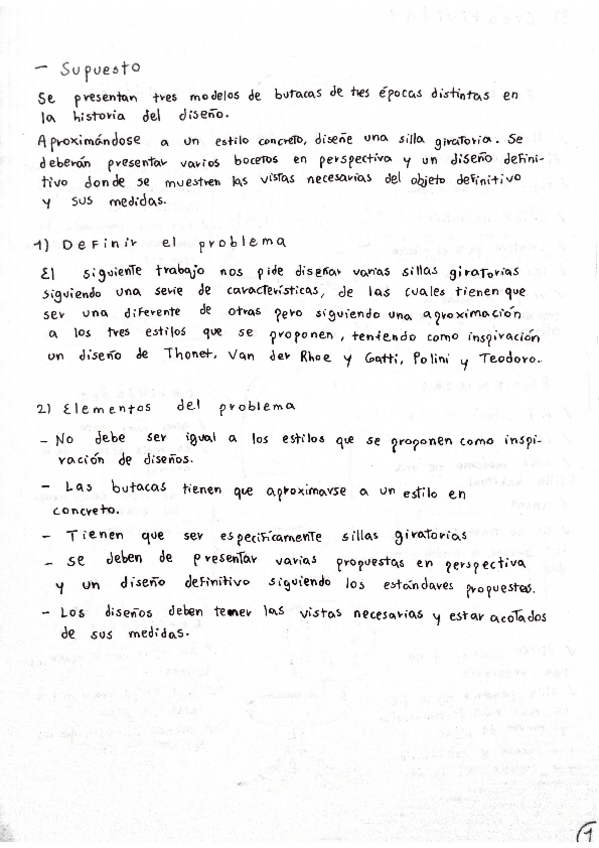 - Supuesto
Se presentan tres modelos de butacas de tres épocas distintas en
la historia del diseño.
Aproximándose a un estilo concreto, diseñe una silla giratoria. Se
deberán presentar varios bocetos en perspectiva y un diseño defini-
tivo donde se muestren las vistas necesarias del objeto definitivo
y sus medidas.
1) Definir el problema
El siguiente trabajo nos pide diseñar varias sillas giratorias
siguiendo una serie de características, de las cuales tienen que
ser una diferente de otras pero siguiendo una aproximación
a los tres estilos que se proponen, teniendo como inspiración
un diseño de Thonet, Van der Rhoe y Gatti, Polini y Teodoro.
2) Elementos del problema
- No debe ser igual a los estilos que se proponen como inspi-
ración de diseños.
- Las butacas tienen que aproximarse a un estilo en
concreto.
- Tienen que ser específicamente sillas giratorias
- se deben de presentar varias propuestas en perspectiva
y un diseño definitivo siguiendo los estándares propuestos.
- Los diseños deben tener las vistas necesarias y estar acotados
de sus medidas.
1